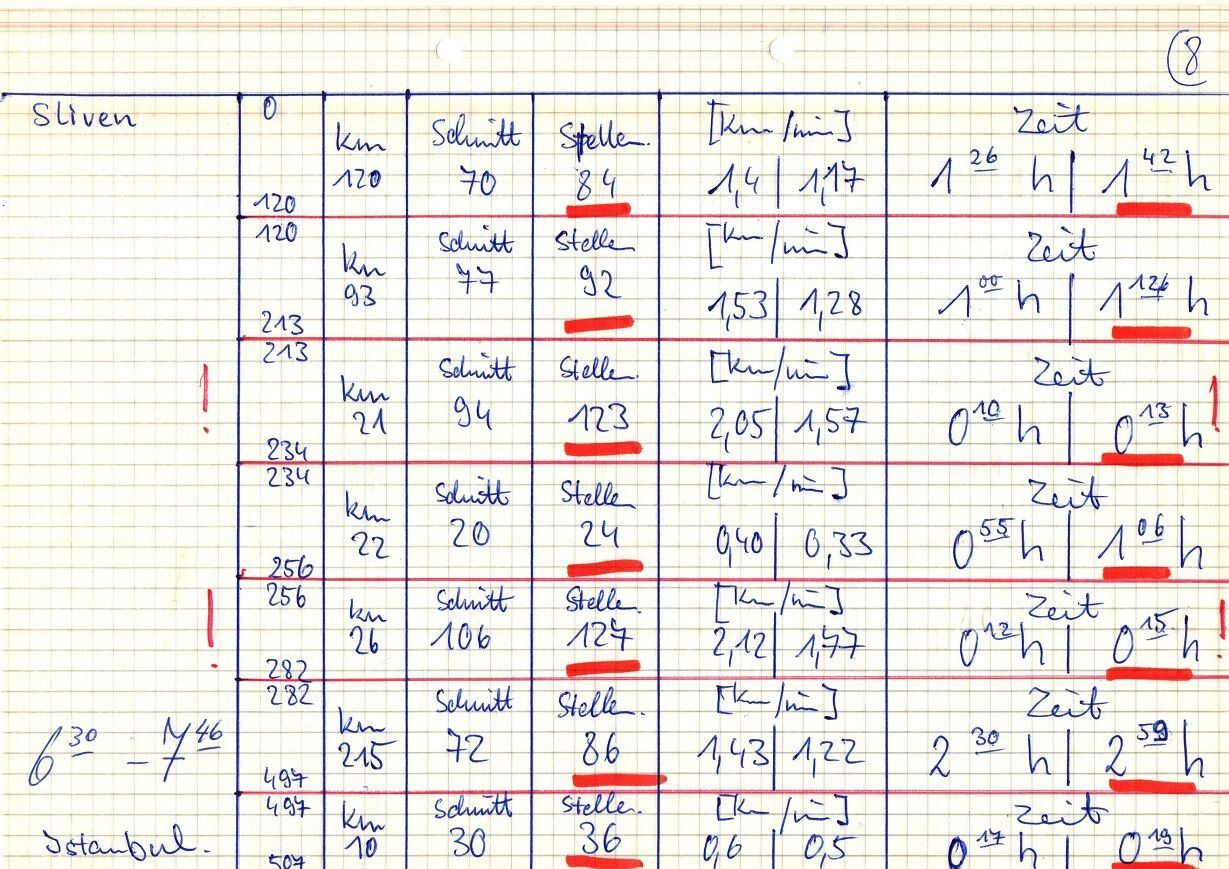 8
Sliven
0
km
Schnitt
Stellen.
[km/min]
Zeit
120
70
84
1,4 | 1,17
1 26 h | 1 42 h
120
120
km
Schnitt
Stellen
[km/min]
Zeit
93
77
92
1,53 | 1,28
1 00 h | h
213
213
km
Schnitt
Stellen.
[km/min]
Zeit
! 21
94
123
2,05 | 1,57
0 10 h | 0 13 h !
234
234
km
Schnitt
Stellen
[km/min]
Zeit
22
20
24
0,40 | 0,33
0 55 h | 1 06 h
256
256
km
Schnitt
Stellen.
[km/min]
Zeit
! 26
106
127
2,12 | 1,77
0 12 h | 0 15 h !
282
282
km
Schnitt
Stellen.
[km/min]
Zeit
6 30 – 7 46
215
72
86
1,43 | 1,22
2 30 h | 2 59 h
497
497
km
Schnitt
Stellen.
[km/min]
Zeit
Istanbul.
10
30
36
0,6 | 0,5
0 17 h | 0 19 h
507